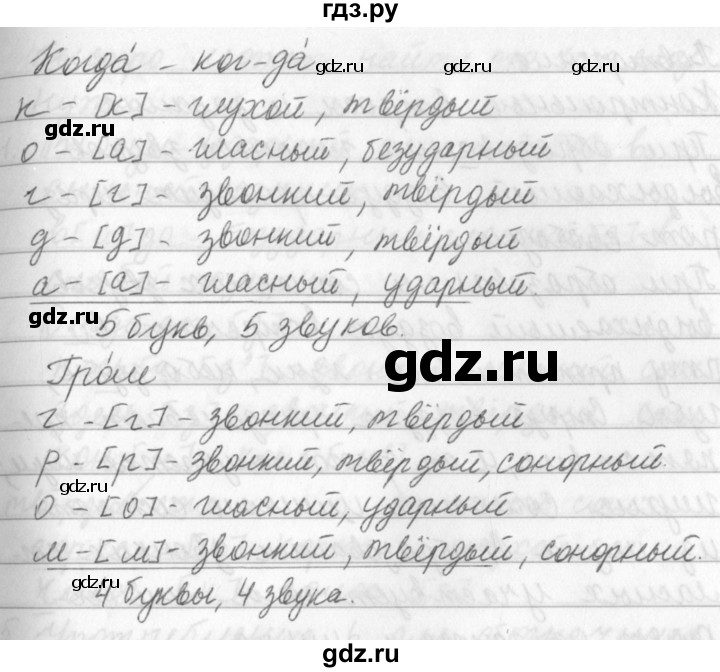 гдз.ру
Когда́ - ког-да́
gdz.ru gdz.ru gdz.ru
к - [к] - глухой, твёрдый
gdz.ru
о - [а] - гласный, безударный
г - [г] - звонкий, твёрдый
д - [д] - звонкий, твёрдый
а - [а] - гласный, ударный
gdz.ru
5 букв, 5 звуков.
gdz.ru
Гро́м
г - [г] - звонкий, твёрдый
р - [р] - звонкий, твёрдый, сонорный.
gdz.ru
о - [о] - гласный, ударный
м - [м] - звонкий, твёрдый, сонорный.
gdz.ru
4 буквы, 4 звука.